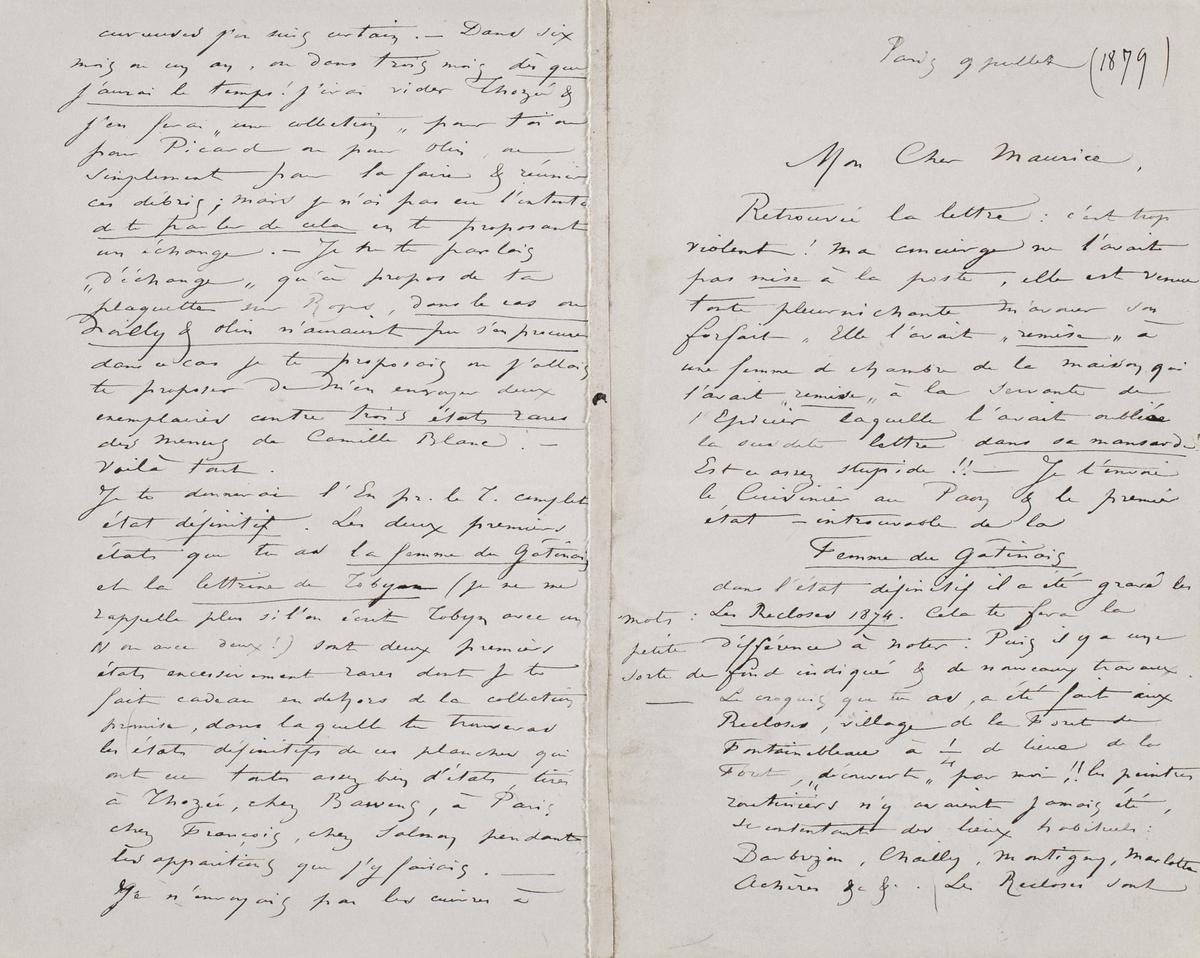 curieuses j'en suis certain. – Dans six
mois ou un an, ou dans trois mois, dès que
j'aurai le temps! j'irai vider Thozée &
j'en ferai „une collection„ pour toi ou
pour Picard ou pour Olin, ou
simplement pour la faire & réunir
ces débris; mais je n'ai pas eu l'intention
de te parler de cela en te proposant
un échange. – Je ne te parlais
„d'échange„ qu'à propos de ta
plaquette sur Rops, dans le cas où
Nailly & Olin n'auraient pu s'en procurer
dans ce cas je te proposais ou j'allais
te proposer de m'en envoyer deux
exemplaires contre trois états rares
des Menus de Camille Blanc! –
Voilà tout.
Je te donnerai l'En pr. le T. complet
état définitif. Les deux premiers
états que tu as la femme du Gâtinais
et la lettrine de Tobyn (je ne me
rappelle plus si l'on écrit Tobyn avec un
N ou avec deux!) sont deux premiers
états excessivement rares dont je te
fait cadeau en dehors de la collection
promise, dans laquelle tu trouveras
les états définitifs de ces planches qui
ont eu toutes assez bien d'états tirés
à Thozée, chez Bawens, à Paris
chez François, chez Salmon pendant
les apparitions que j'y faisais. —
Je n'envoyais pas les cuivres à
Paris 9 juillet (1879)
Mon Cher Maurice,
Retrouvée la lettre : c'est trop
violent! ma concierge ne l'avait
pas mise à la poste, elle est venue
toute pleurnichante m'avouer son
forfait. Elle l'avait „remise„ à
une femme de chambre de la maison qui
l'avait „remise„ à la servante de
l'Epicier laquelle l'avait oubliée
la susdite lettre dans sa mansarde!
Est ce assez stupide!! — Je t'envoie
le Cuisinier au Paon & le premier
état – introuvable de la
Femme du Gâtinais
dans l'état définitif il a été gravé les
mots : Les Recloses 1874. Cela te fera la
petite différence à noter : Puis il y a une
sorte de fond indiqué & de nouveaux travaux.
— Le croquis que tu as, a été fait aux
Recloses, village de la Forêt de
Fontainebleau à 1/4 de lieue de la
Forêt, „découverte„ par moi!! les peintres
routiniers n'y avaient jamais été,
se contentant des lieux habituels :
Barbizon, Chailly, Montigny, Marlotte
Achères &c &. | Les Recloses sont